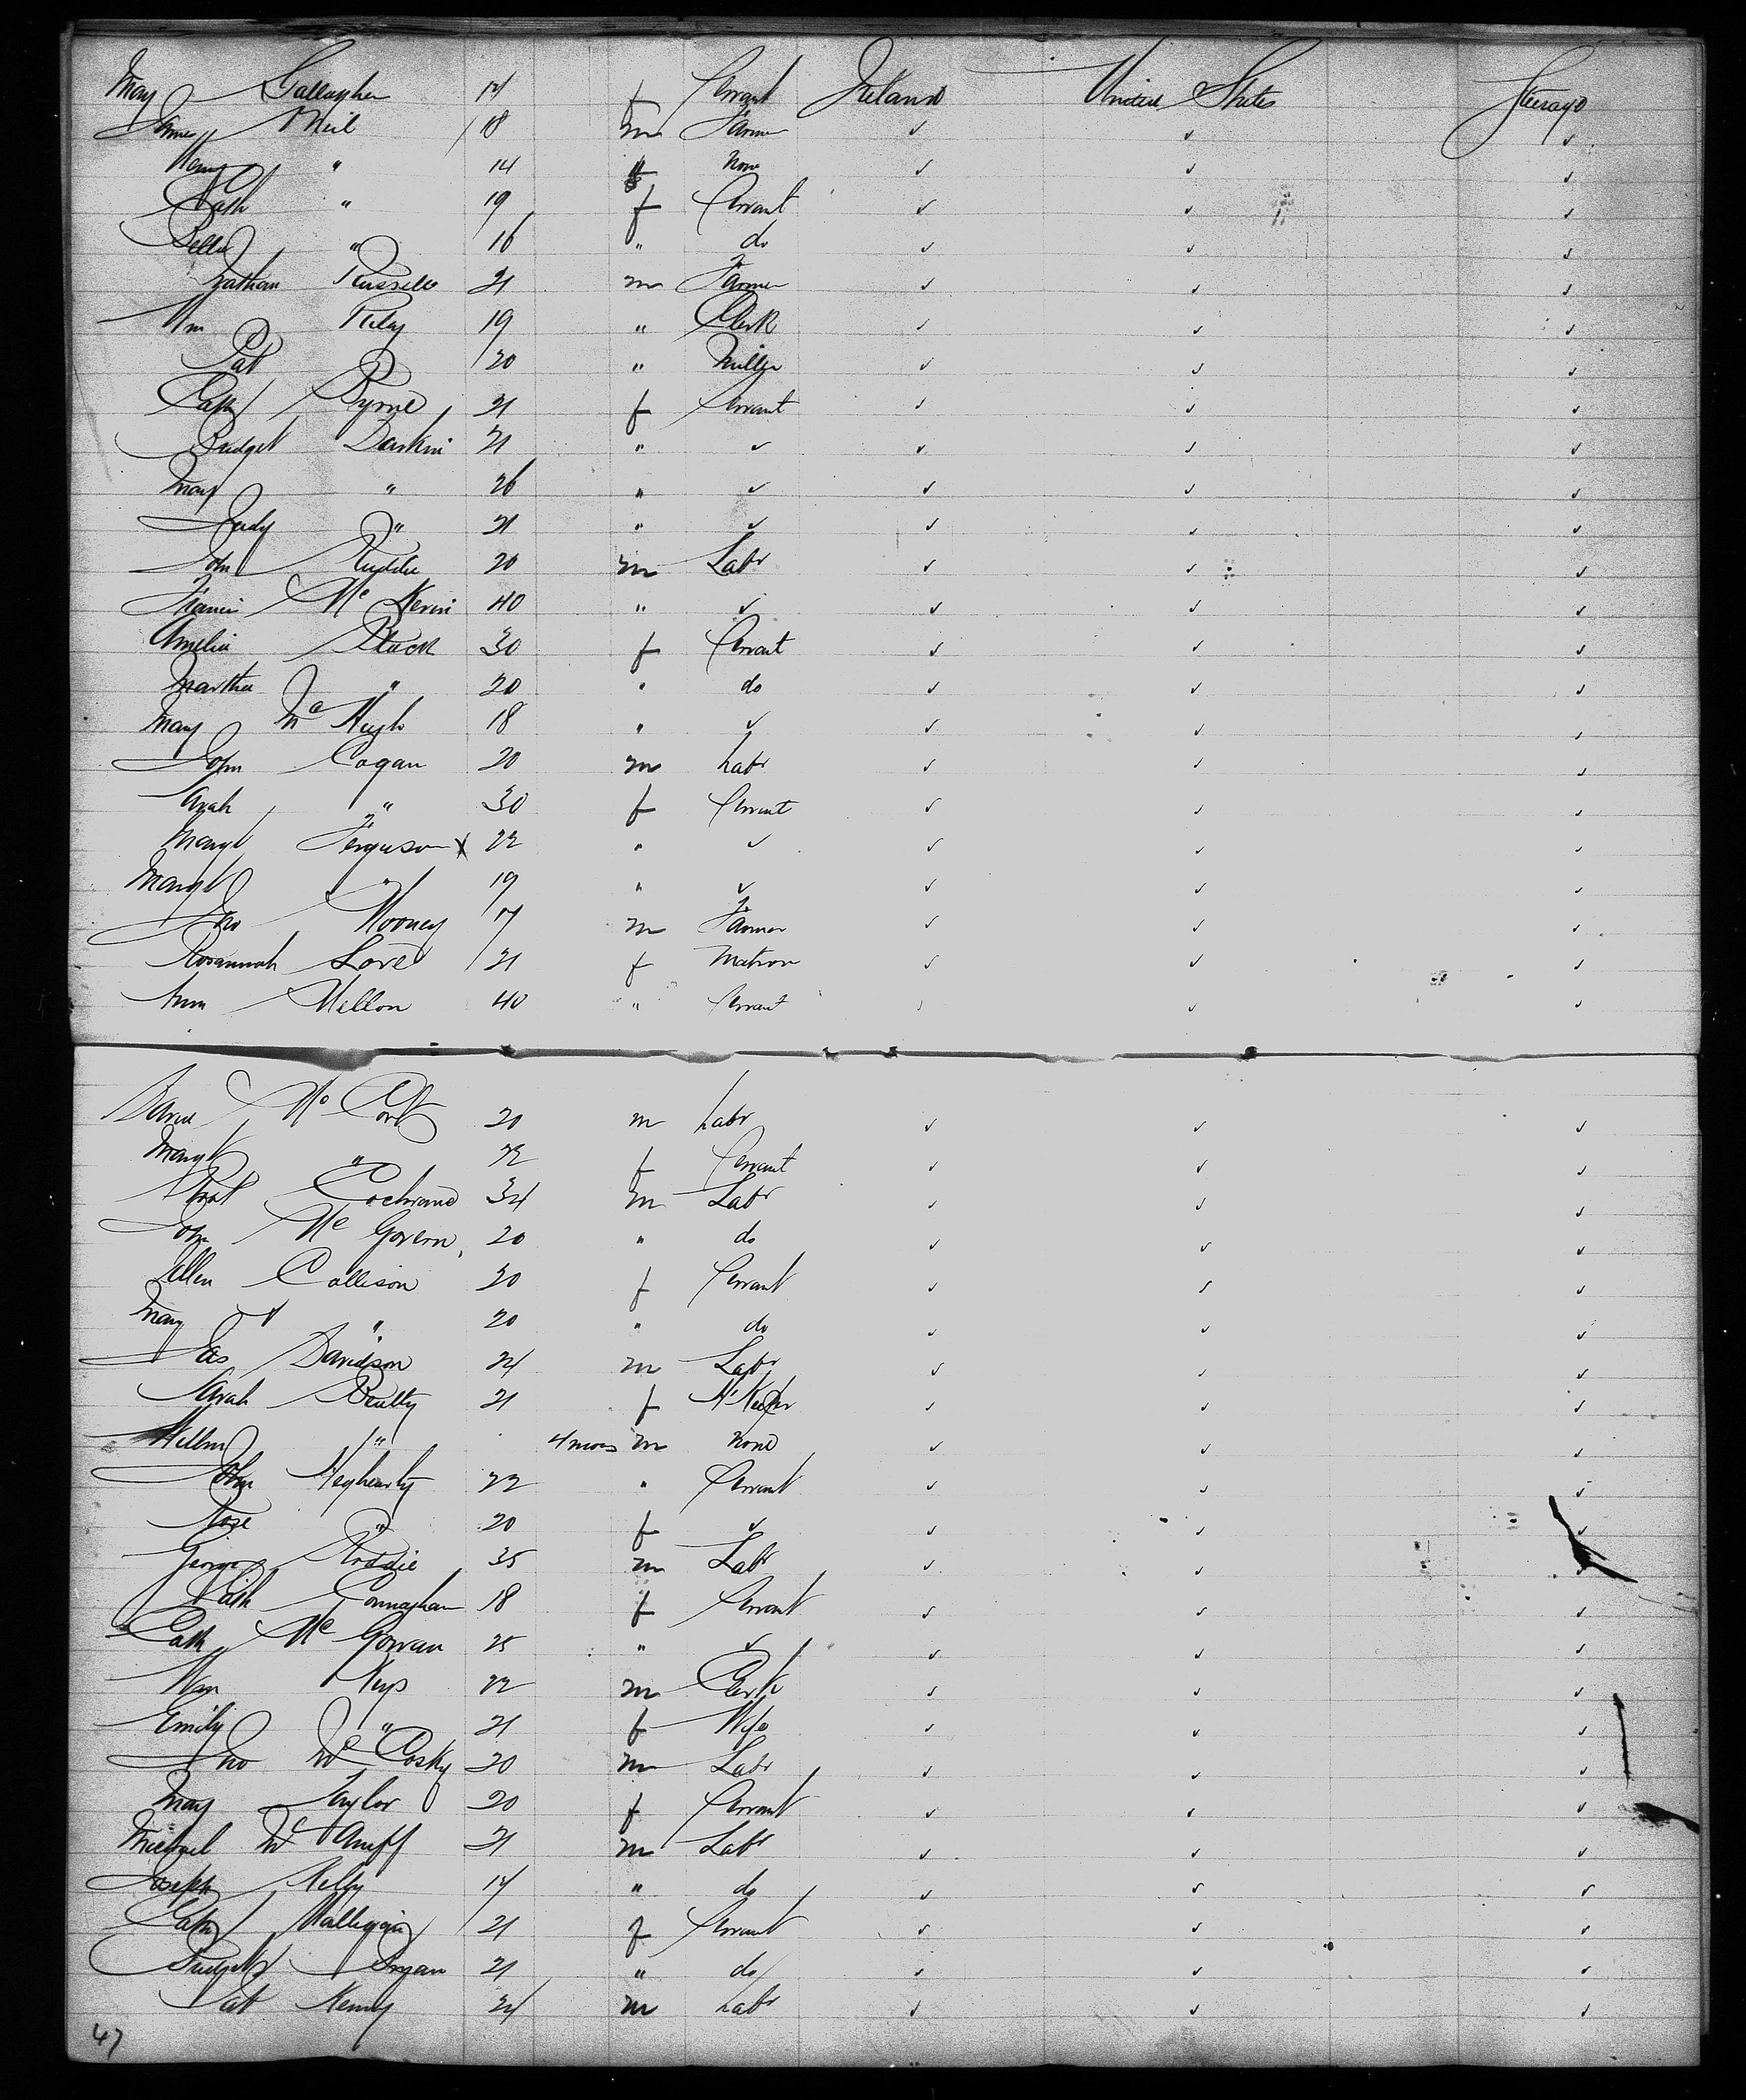 Mary Gallagher 17 f Servant Ireland United States Steerage
James Neil 18 m Farmer ✓ ✓ ✓
Henry " 14 None ✓ ✓ ✓
Cath " 19 f Servant ✓ ✓ ✓
Bella " 16 " do ✓ ✓ ✓
Nathan Russell 21 m Farmer ✓ ✓ ✓
Wm Riley 19 " Clerk ✓ ✓ ✓
Pat 20 " Miller ✓ ✓ ✓
Cath Byrne 21 f Servant ✓ ✓ ✓
Bridget Durkin 21 " ✓ ✓ ✓ ✓
Mary " 26 " ✓ ✓ ✓ ✓
Judy " 21 " ✓ ✓ ✓ ✓
John Ruddie 20 m Labr ✓ ✓ ✓
Mc 40 " ✓ ✓ ✓ ✓
Amelia Black 30 f Servant ✓ ✓ ✓
Martha " 20 " do ✓ ✓ ✓
Mary McHugh 18 " ✓ ✓ ✓ ✓
John Cogan 20 m Labr ✓ ✓ ✓
Sarah " 30 f Servant ✓ ✓ ✓
Margt Ferguson X 22 " ✓ ✓ ✓ ✓
Margt " 19 " ✓ ✓ ✓ ✓
Jno Mooney 17 m Farmer ✓ ✓ ✓
Rosannah Love 21 f Matron ✓ ✓ ✓
Ann Mellon 40 " Servant ✓ ✓ ✓
David McCort 20 m Labr ✓ ✓ ✓
Margt " 22 f Servant ✓ ✓ ✓
Robt Cochrane 34 m Labr ✓ ✓ ✓
John McGovern 20 " do ✓ ✓ ✓
Ellen Collison 30 f Servant ✓ ✓ ✓
Mary " 20 " do ✓ ✓ ✓
Jas Davidson 24 m Labr ✓ ✓ ✓
Sarah Beatty 21 f H Keeper ✓ ✓ ✓
Willm " 4 mos m None ✓ ✓ ✓
John Heghearty 22 " Servant ✓ ✓ ✓
Rose " 20 f ✓ ✓ ✓ ✓
George Roddie 35 m Labr ✓ ✓ ✓
Cath Connaghan 18 f Servant ✓ ✓ ✓
Cath McGowan 25 " ✓ ✓ ✓ ✓
Wm Keys 22 m Clerk ✓ ✓ ✓
Emily " 21 f Wife ✓ ✓ ✓
Jno McCosky 20 m Labr ✓ ✓ ✓
Mary Taylor 20 f Servant ✓ ✓ ✓
Michael McAnuff 21 m Labr ✓ ✓ ✓
Joseph Kelly 17 " do ✓ ✓ ✓
Cath Halligan 21 f Servant ✓ ✓ ✓
Bridget 21 " do ✓ ✓ ✓
Pat Kenny 24 m Labr ✓ ✓ ✓
47